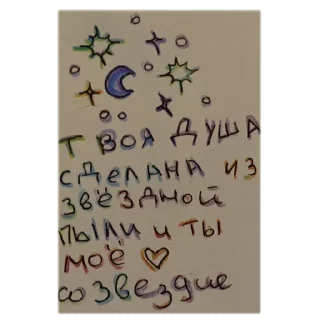 ТВОЯ ДУША
СДЕЛАНА ИЗ
ЗВЁЗДНОЙ
ПЫЛИ И ТЫ
МОЁ ♡
созвездие